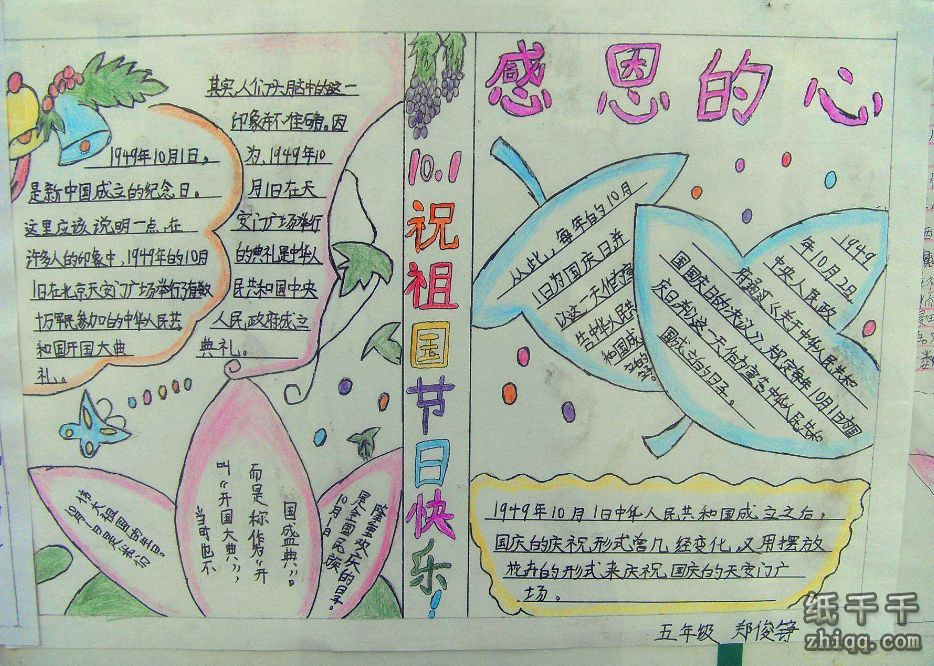 感恩的心
10.1祝祖国节日快乐！
1949年10月1日，
是新中国成立的纪念日。
这里应该说明一点，在
许多人的印象中，1949年的10月
1日在北京天安门广场举行了有数
十万军民参加的中华人民共
和国开国大典
礼。
其实，人们头脑中的这一
印象并不准确。因
为，1949年10
月1日在天
安门广场举行
的典礼是中华人
民共和国中央
人民政府成立
典礼。
伟大祖国的生日。
国盛典"。
而是称作为"开
叫"开国大典"，
当时也不
隆重欢庆的日子。
是全国各族
10月1日
从此，每年的10月
1日为国庆日并
以这一天作为宣
告中华人民共
和国成
立的日子。
1949
年10月2日
中央人民政
府通过《关于中华人民共和
国国庆日的决议》，规定每年10月1日为国
庆日，并以这一天作为宣告中华人民共和
国成立的日子。
1949年10月1日中华人民共和国成立之后，
国庆的庆祝形式曾几经变化，又用摆放
花卉的形式来庆祝国庆的天安门广
场。
五年级 郑俊铮
纸千千
zhiqq.com